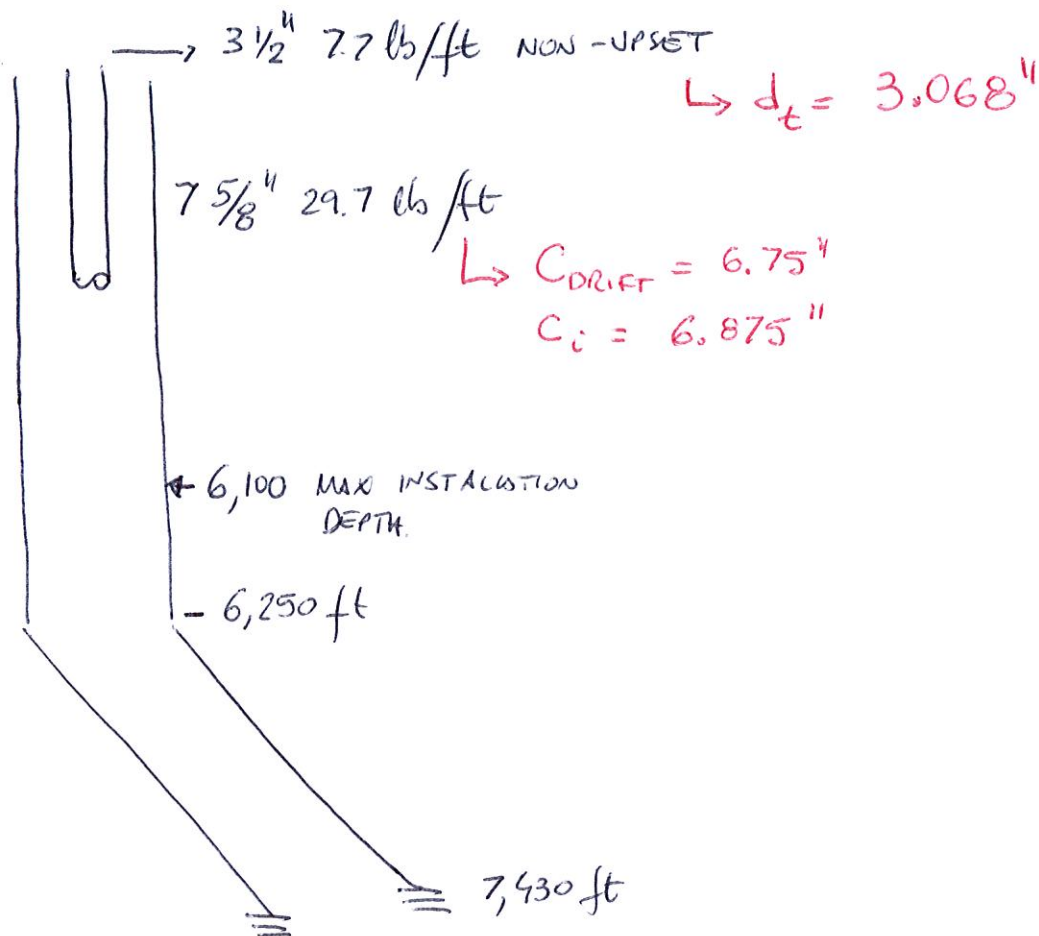 → 3 1/2" 7.7 lb/ft NON-UPSET
↳ dt = 3.068"
7 5/8" 29.7 lb/ft
↳ CDRIFT = 6.75"
Ci = 6.875"
← 6,100 MAX INSTALLATION
DEPTH.
- 6,250 ft
7,430 ft